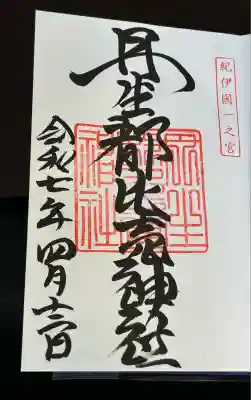 紀伊國一之宮
丹生都比売神社
丹生
都比賣
神社
令和七年四月十二日